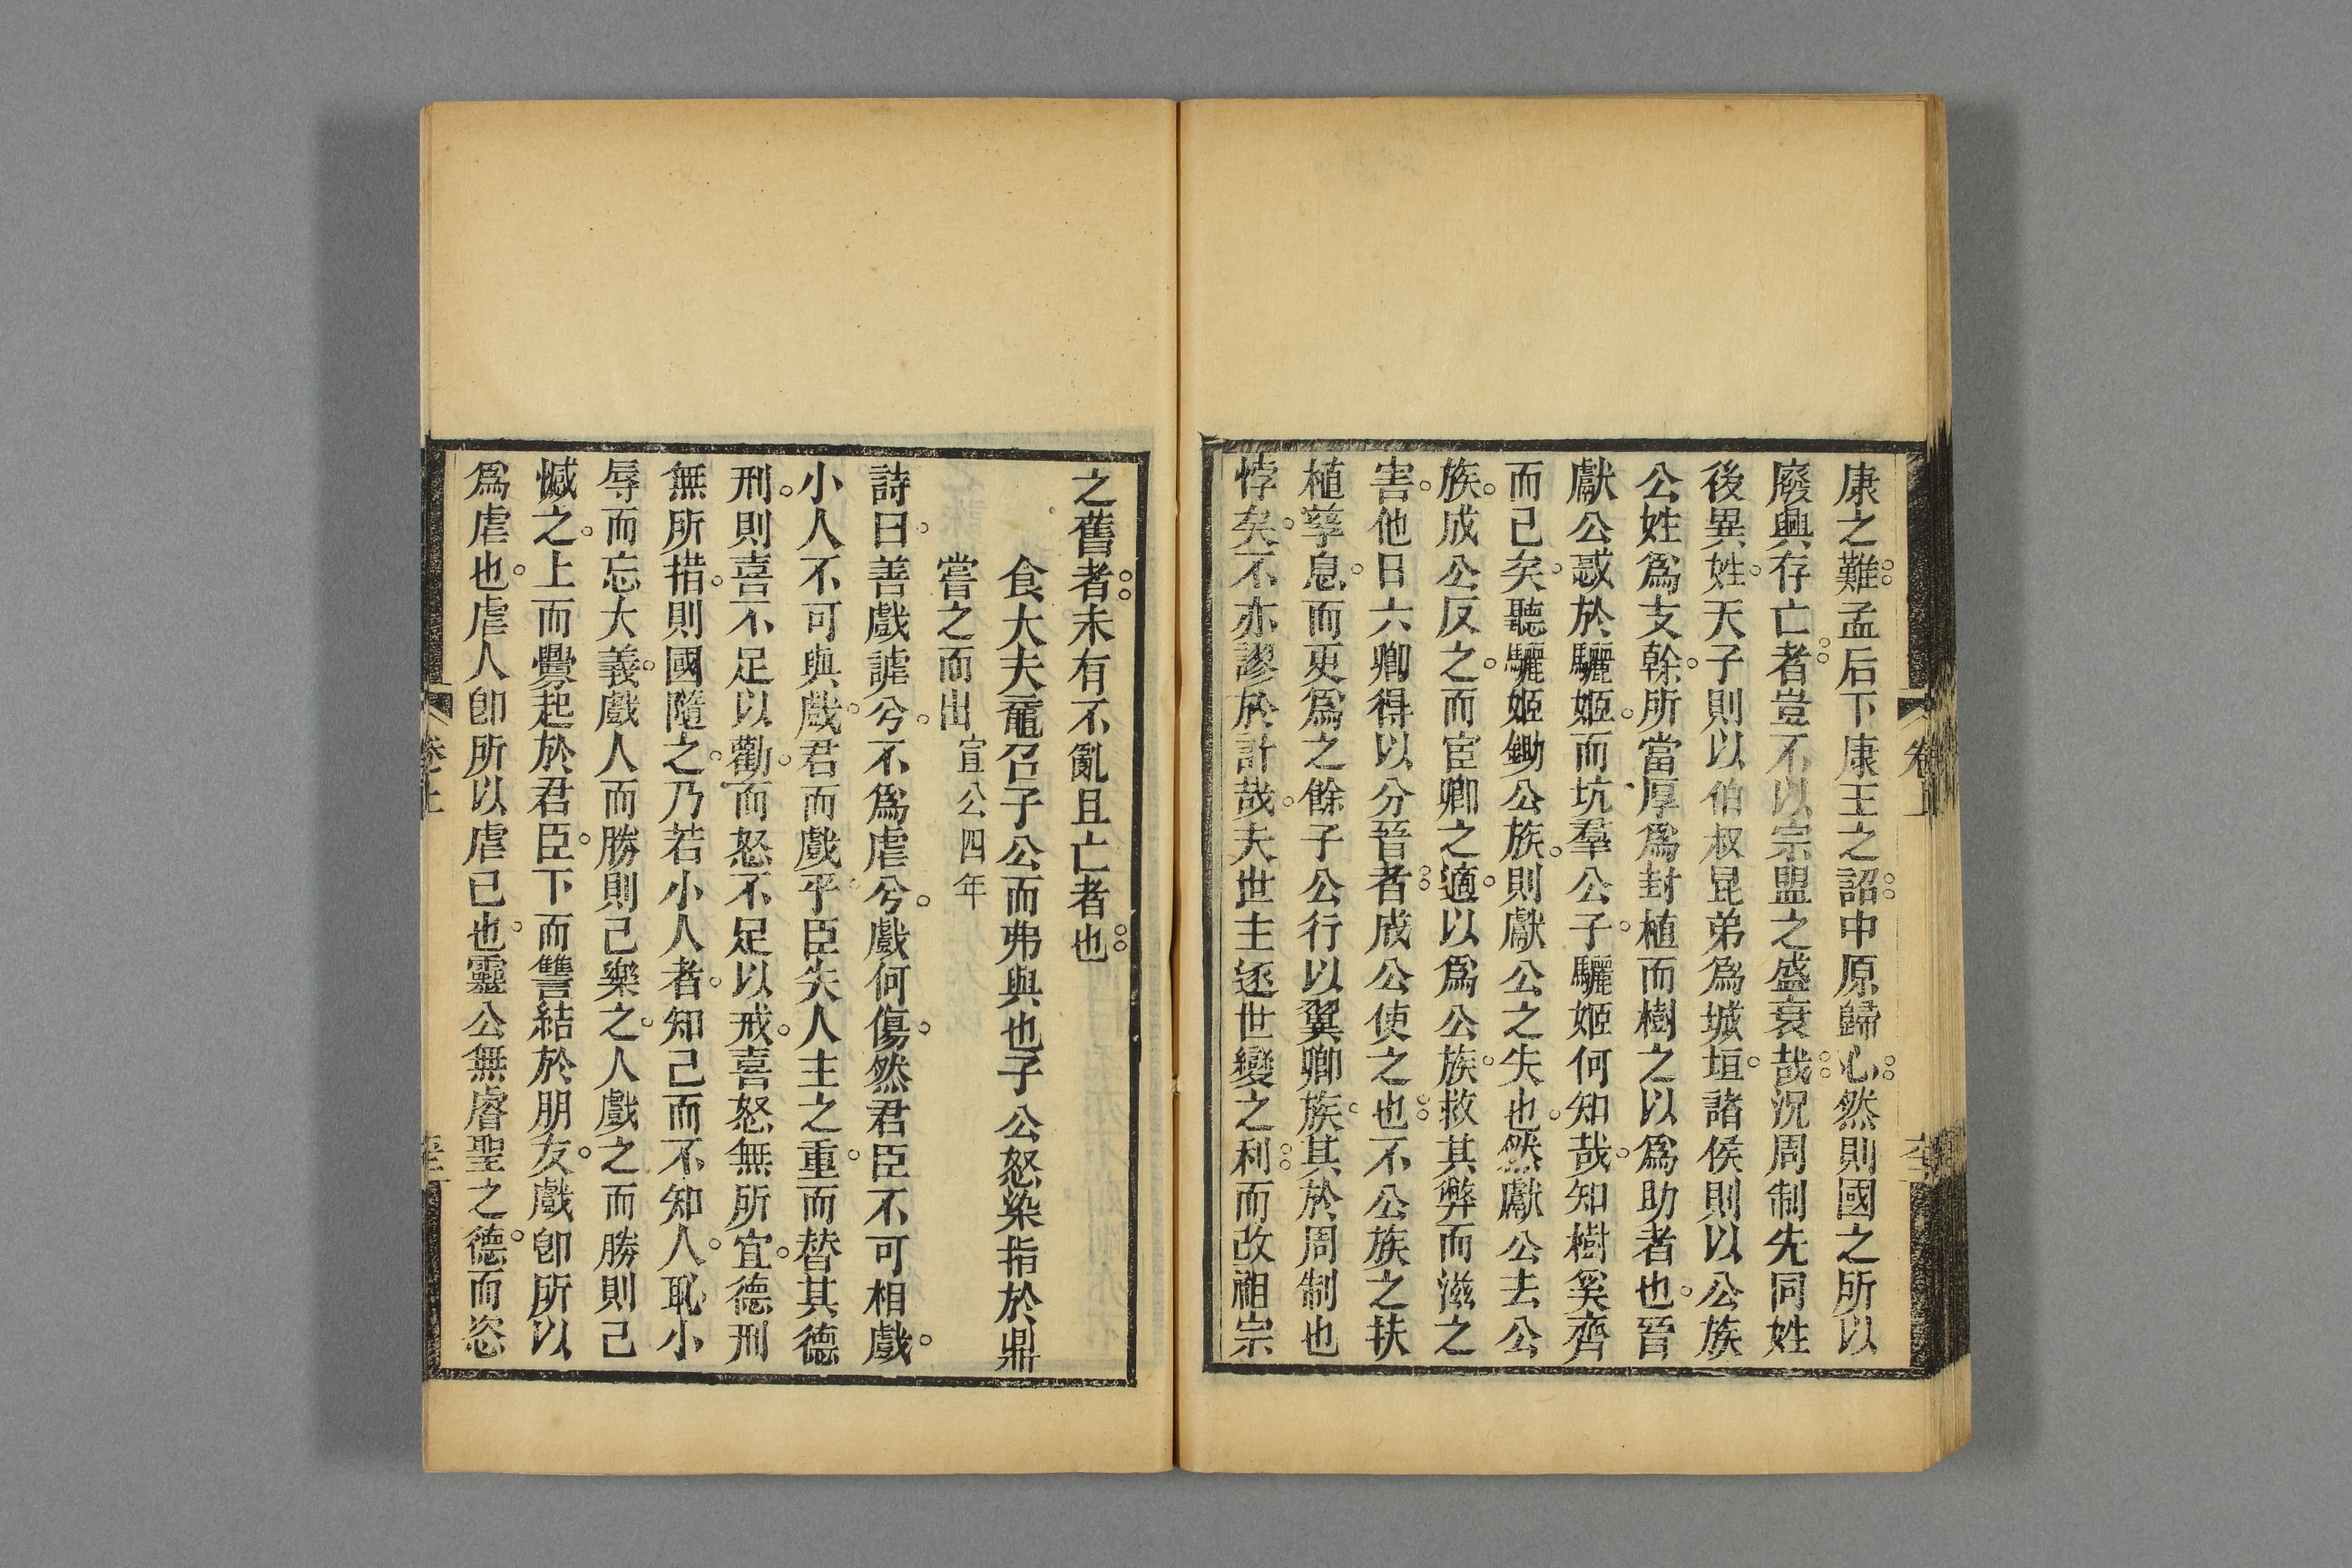 康之難孟后下康王之詔中原歸心然則國之所以
廢興存亡者豈不以宗盟之盛衰哉況周制先同姓
後異姓天子則以伯叔昆弟爲城垣諸侯則以公族
公姓爲支榦所當厚爲封植而樹之以爲助者也晉
獻公惑於驪姬而坑羣公子驪姬何知哉知樹奚齊
而已矣聽驪姬鋤公族則獻公之失也然獻公去公
族成公反之而宦卿之適以爲公族救其弊而滋之
害他日六卿得以分晉者成公使之也不公族之扶
植孳息而更爲之餘子公行以翼卿族其於周制也
悖矣不亦謬於計哉夫世主逐世變之利而改祖宗
之舊者未有不亂且亡者也
食大夫黿召子公而弗與也子公怒染指於鼎
嘗之而出宣公四年
詩曰善戲謔兮不爲虐兮戲何傷然君臣不可相戲
小人不可與戲君而戲乎臣失人主之重而替其德
刑則喜不足以勸而怒不足以戒喜怒無所宜德刑
無所措則國隨之乃若小人者知己而不知人恥小
辱而忘大義戲人而勝則己樂之人戲之而勝則己
憾之上而釁起於君臣下而讐結於朋友戲卽所以
爲虐也虐人卽所以虐已也靈公無睿聖之德而恣
卷上
卷上